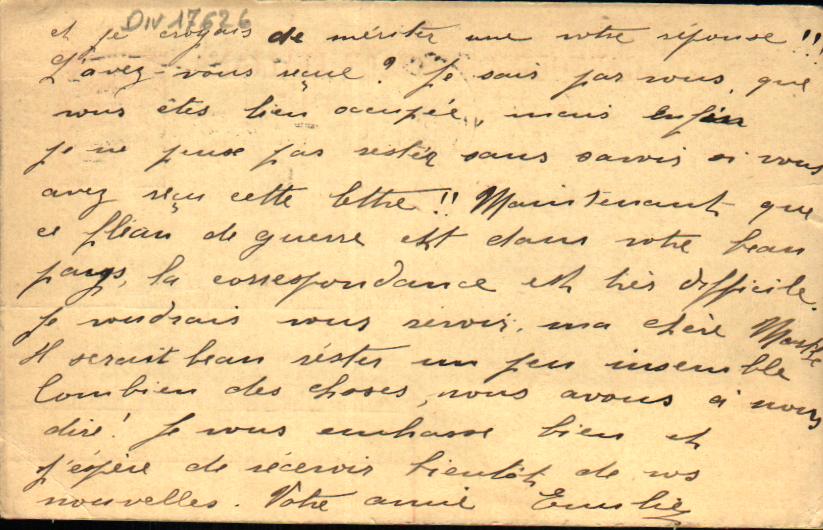 DIV 17626
et je croyais de mériter une votre réponse !!!
L'avez-vous reçue ? Je sais par vous, que
vous êtes bien occupée, mais enfin
je ne peux pas rester sans savoir si vous
avez reçu cette lettre !! Maintenant que
ce fléau de guerre est dans votre beau
pays, la correspondance est très difficile.
Je voudrais vous revoir, ma chère
Il serait beau réster un peu insemble
Combien des choses, nous avons à nous
dire! Je vous embrasse bien et
j'éspère de récevoir bientôt de vos
nouvelles. Votre amie Emilie